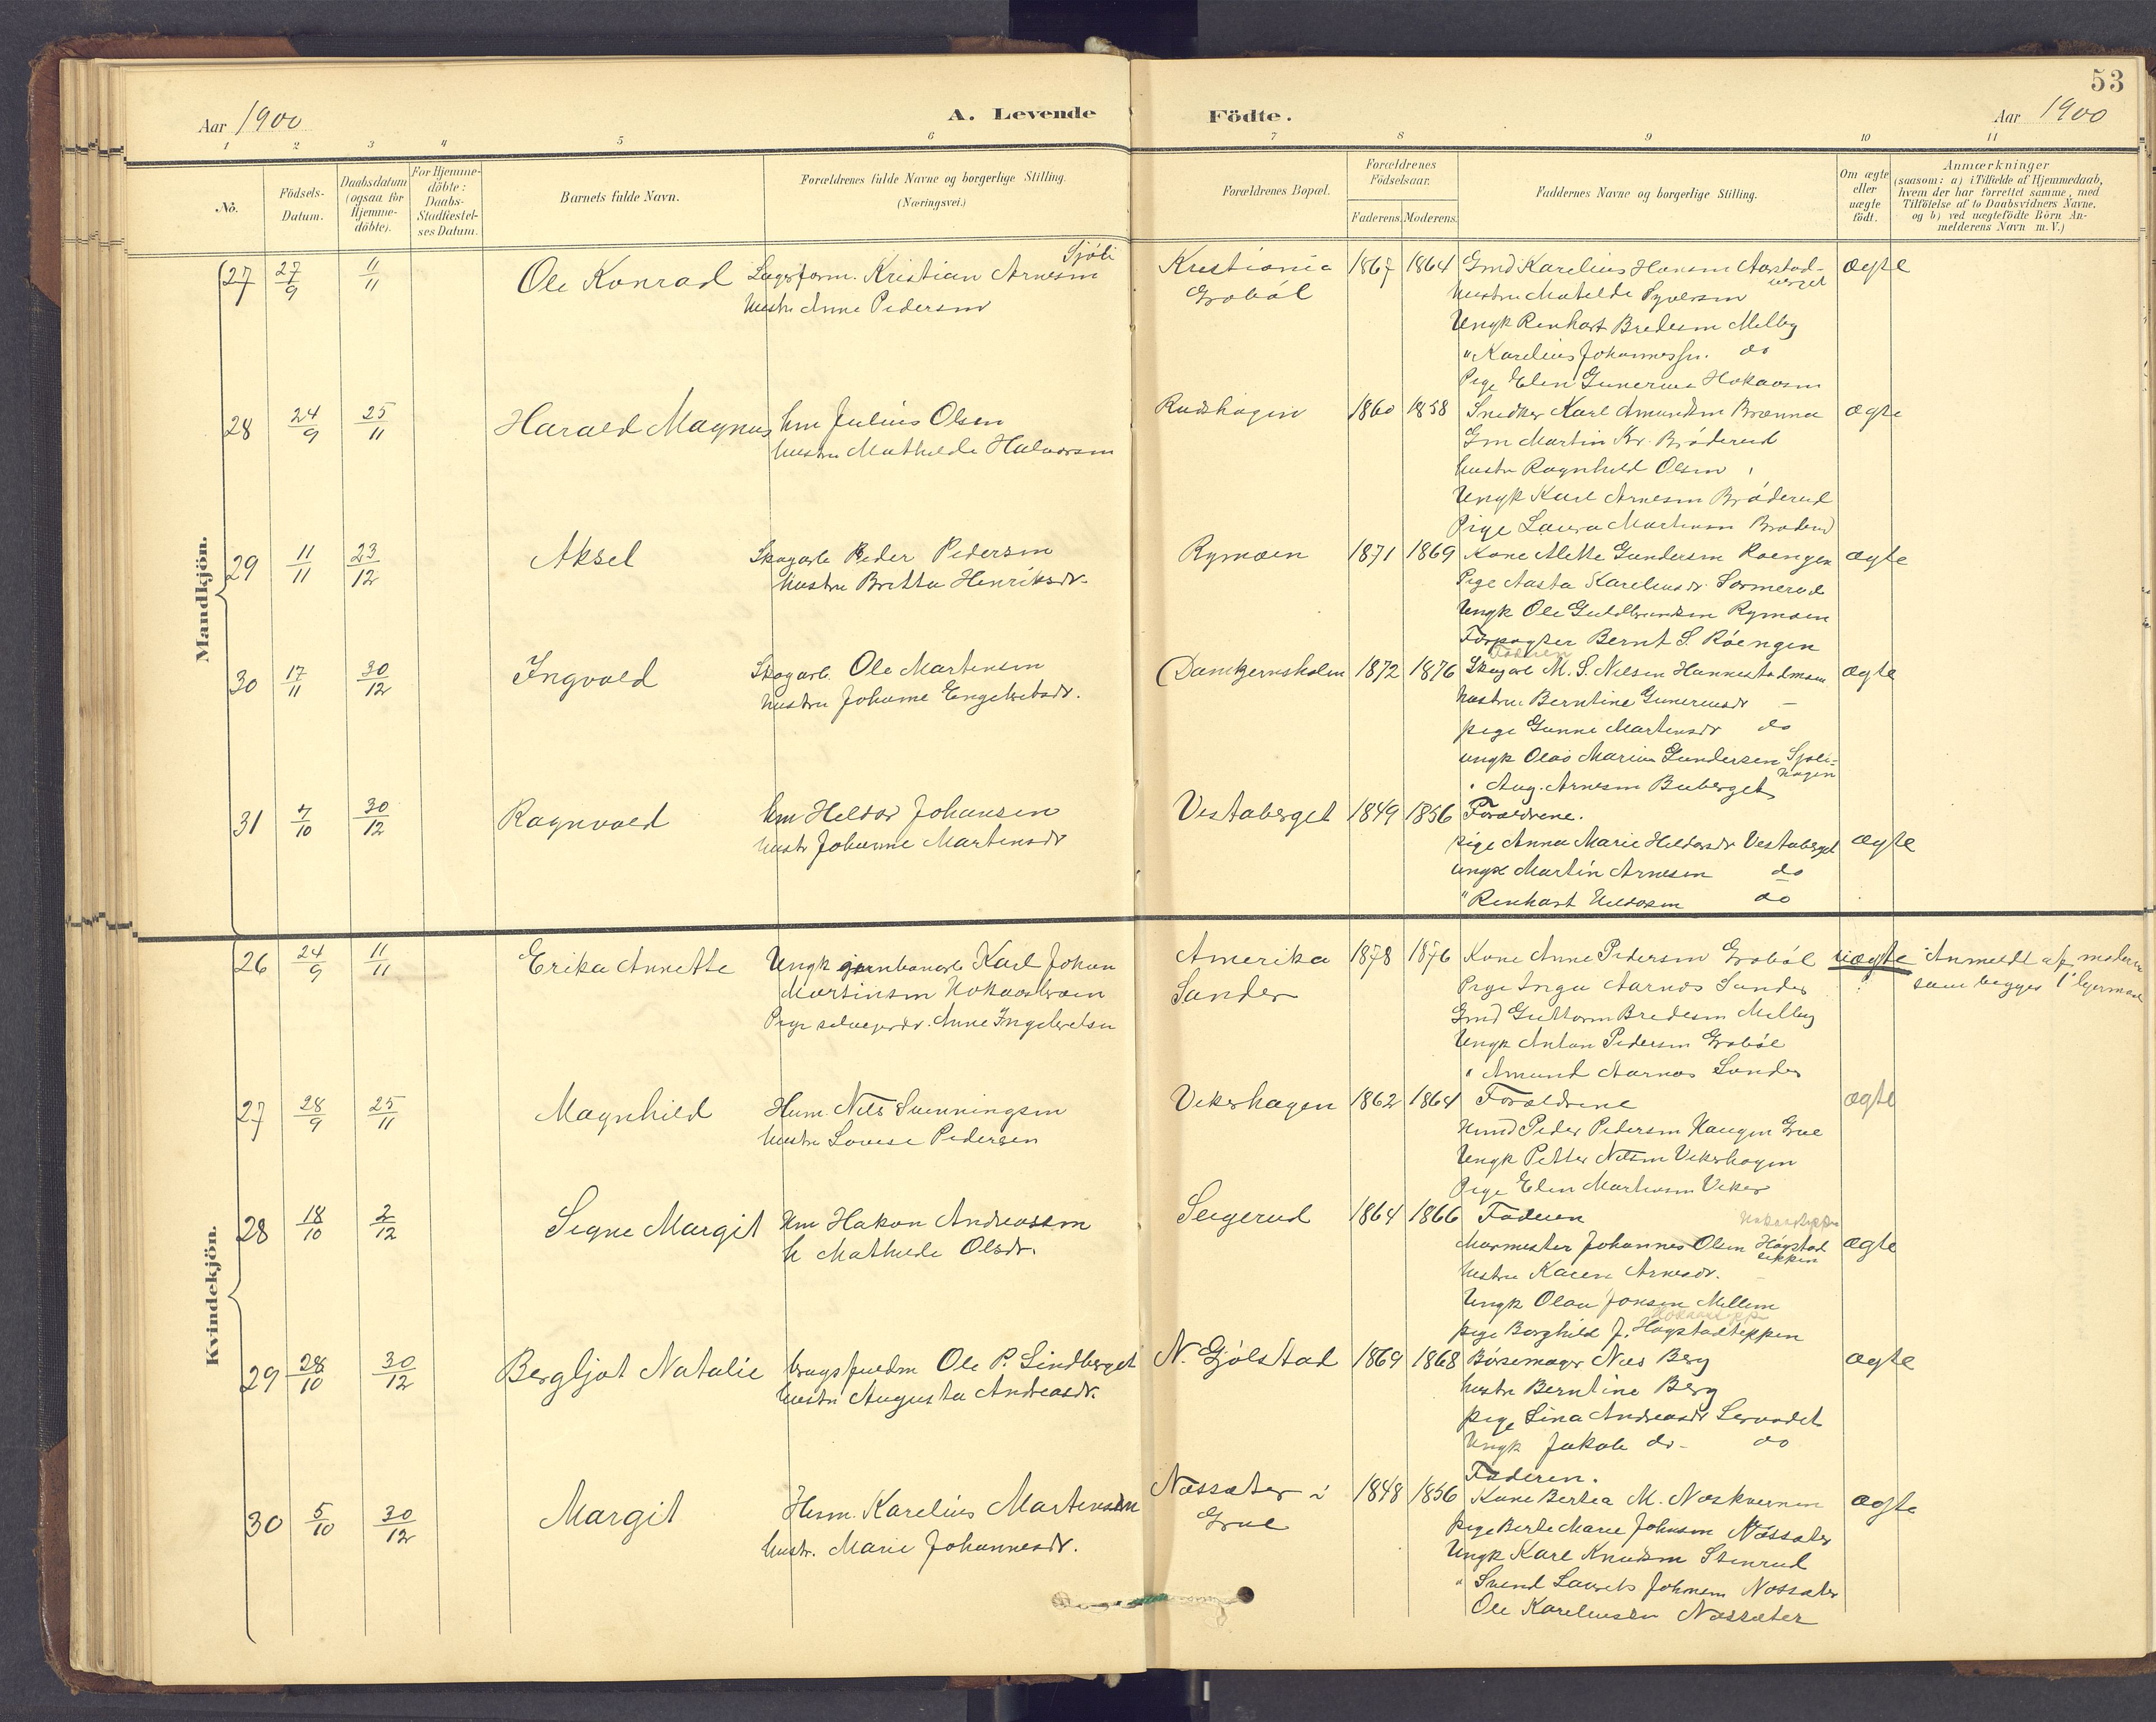 53
Aar 1900
A. Levende Födte.
Aar 1900
1 2 3 4 5 6 7 8 9 10 11
No.
Födsels-Datum.
Daabsdatum (ogsaa for Hjemme-döbte).
For Hjemme-döbte: Daabs-Stadfæstel-ses Datum.
Barnets fulde Navn.
Forældrenes fulde Navne og borgerlige Stilling. (Næringsvei.)
Forældrenes Bopæl.
Forældrenes Födselsaar.
Faderens. Moderens.
Faddernes Navne og borgerlige Stilling.
Om ægte eller uægte födt.
Anmærkninger
(saasom: a) i Tilfælde af Hjemmedaab, hvem der har forrettet samme, med Tilföielse af to Daabsvidners Navne, og b) ved uægtefödte Börn An-melderens Navn m. V.)
Mandkjön.
27 27/9 11/11 Ole Konrad
Kristian Arnesen Sjöli
Hustru Anne Pedersen
Kristiania
Grobøl
1867 1864
Gmd Karelius Hansen
Hustru Matilde Syversen
Ungk Renhart Bredesen Melby
" Karelius Johannessen do
Pige Elen
ægte
28 24/9 25/11 Harald Magnus
Hm Julius Olsen
Hustru Mathilde Halvorsen
Rudshagen
1860 1858
Snedker Karl Amundsen Brænna
Gm Martin Kr. Bröderud
Hustru Ragnhild Olsen "
Ungk Karl Arnesen Bröderud
Pige Laura Martinsen Bröderud
ægte
29 11/11 23/12 Aksel
Skogarb Peder Pedersen
Hustru Britta Henriksdr.
Rymoen
1871 1869
Kone Mette Gundersen Roengen
Pige Aasta Kareliusdr Sormerud
Ungk Ole Guldbrandsen Rymoen
Forpagter Bernt S. Röengen
Faderen
ægte
30 17/11 30/12 Ingvald
Skogarb. Ole Martinsen
Hustru Johanne Engebretsdr.
Damtjernsholm
1872 1876
Skogarb M. S. Nilsen Hannestadmoen
Hustru Berntine Gunerusdr -
pige Gunne Martinsdr do
ungk Olaf Marius Gundersen Sjoli-hagen
" Aug. Arnesen Buberget
ægte
31 7/10 30/12 Ragnvald
Hm Heldor Johansen
Hustr Johanne Martinsdr
Vestaberget
1849 1856
Forældrene.
pige Anna Marie Heldorsdr Vestaberget
ungk Martin Arnesen do
" Renhart Heldorsen do
ægte
Kvindekjön.
26 24/9 11/11 Erika Annette
Ungk jernbanearb Karl Johan
Martinsen
Pige selveierdr. Anne Ingebretsen
Amerika
Sander
1878 1876
Kone Anne Pedersen Grobøl
Pige Inga Aarnes Sander
Gmd Guttorm Bredesen Melby
Ungk Anton Pedersen Grobøl
" Amund Aarnes Sander
uægte
Anmeldt af moderen
som begges 1'
27 28/9 25/11 Magnhild
Husm. Nils Svenningsen
Hustru Lovise Pedersen
Vekerhagen
1862 1864
Forældrene
Husmd Peder Pedersen Haugen Grue
Ungk Petter Nilsen Vekerhagen
Pige Elen Martinsen Veker
ægte
28 18/10 2/12 Signe Margit
Hm Hakon Andreassen
h Mathilde Olsdr.
Seigerud
1864 1866
Faderen
Murmester Johannes Olsen Högstadeppen
Hustru Karen Arnesdr. -
Ungk Olau Jonsen Mellem
pige Borghild J. Hogstadeppen
ægte
29 28/10 30/12 Bergljot Natalie
brugsfuldm Ole P. Lindberget
Hustru Augusta Andreasdr.
N. Gjölstad
1869 1868
Börsemager Nils Berg
Hustru Berntine Berg
pige Lina Andreasdr Servodet
Ungk Jakob do - do
Faderen.
ægte
30 5/10 30/12 Margit
Husm. Karelius Martinsen
Hustr. Marie Johannesdr.
Næssæter i
Grue
1848 1856
Kone Bertea M. Noskvernen
pige Berte Marie Johnsen Næssæter
Ungk Karl Knudsen Stenrud
" Svend Laurits Johnsen Næssæter
Ole Kareliussen Næssæter
ægte